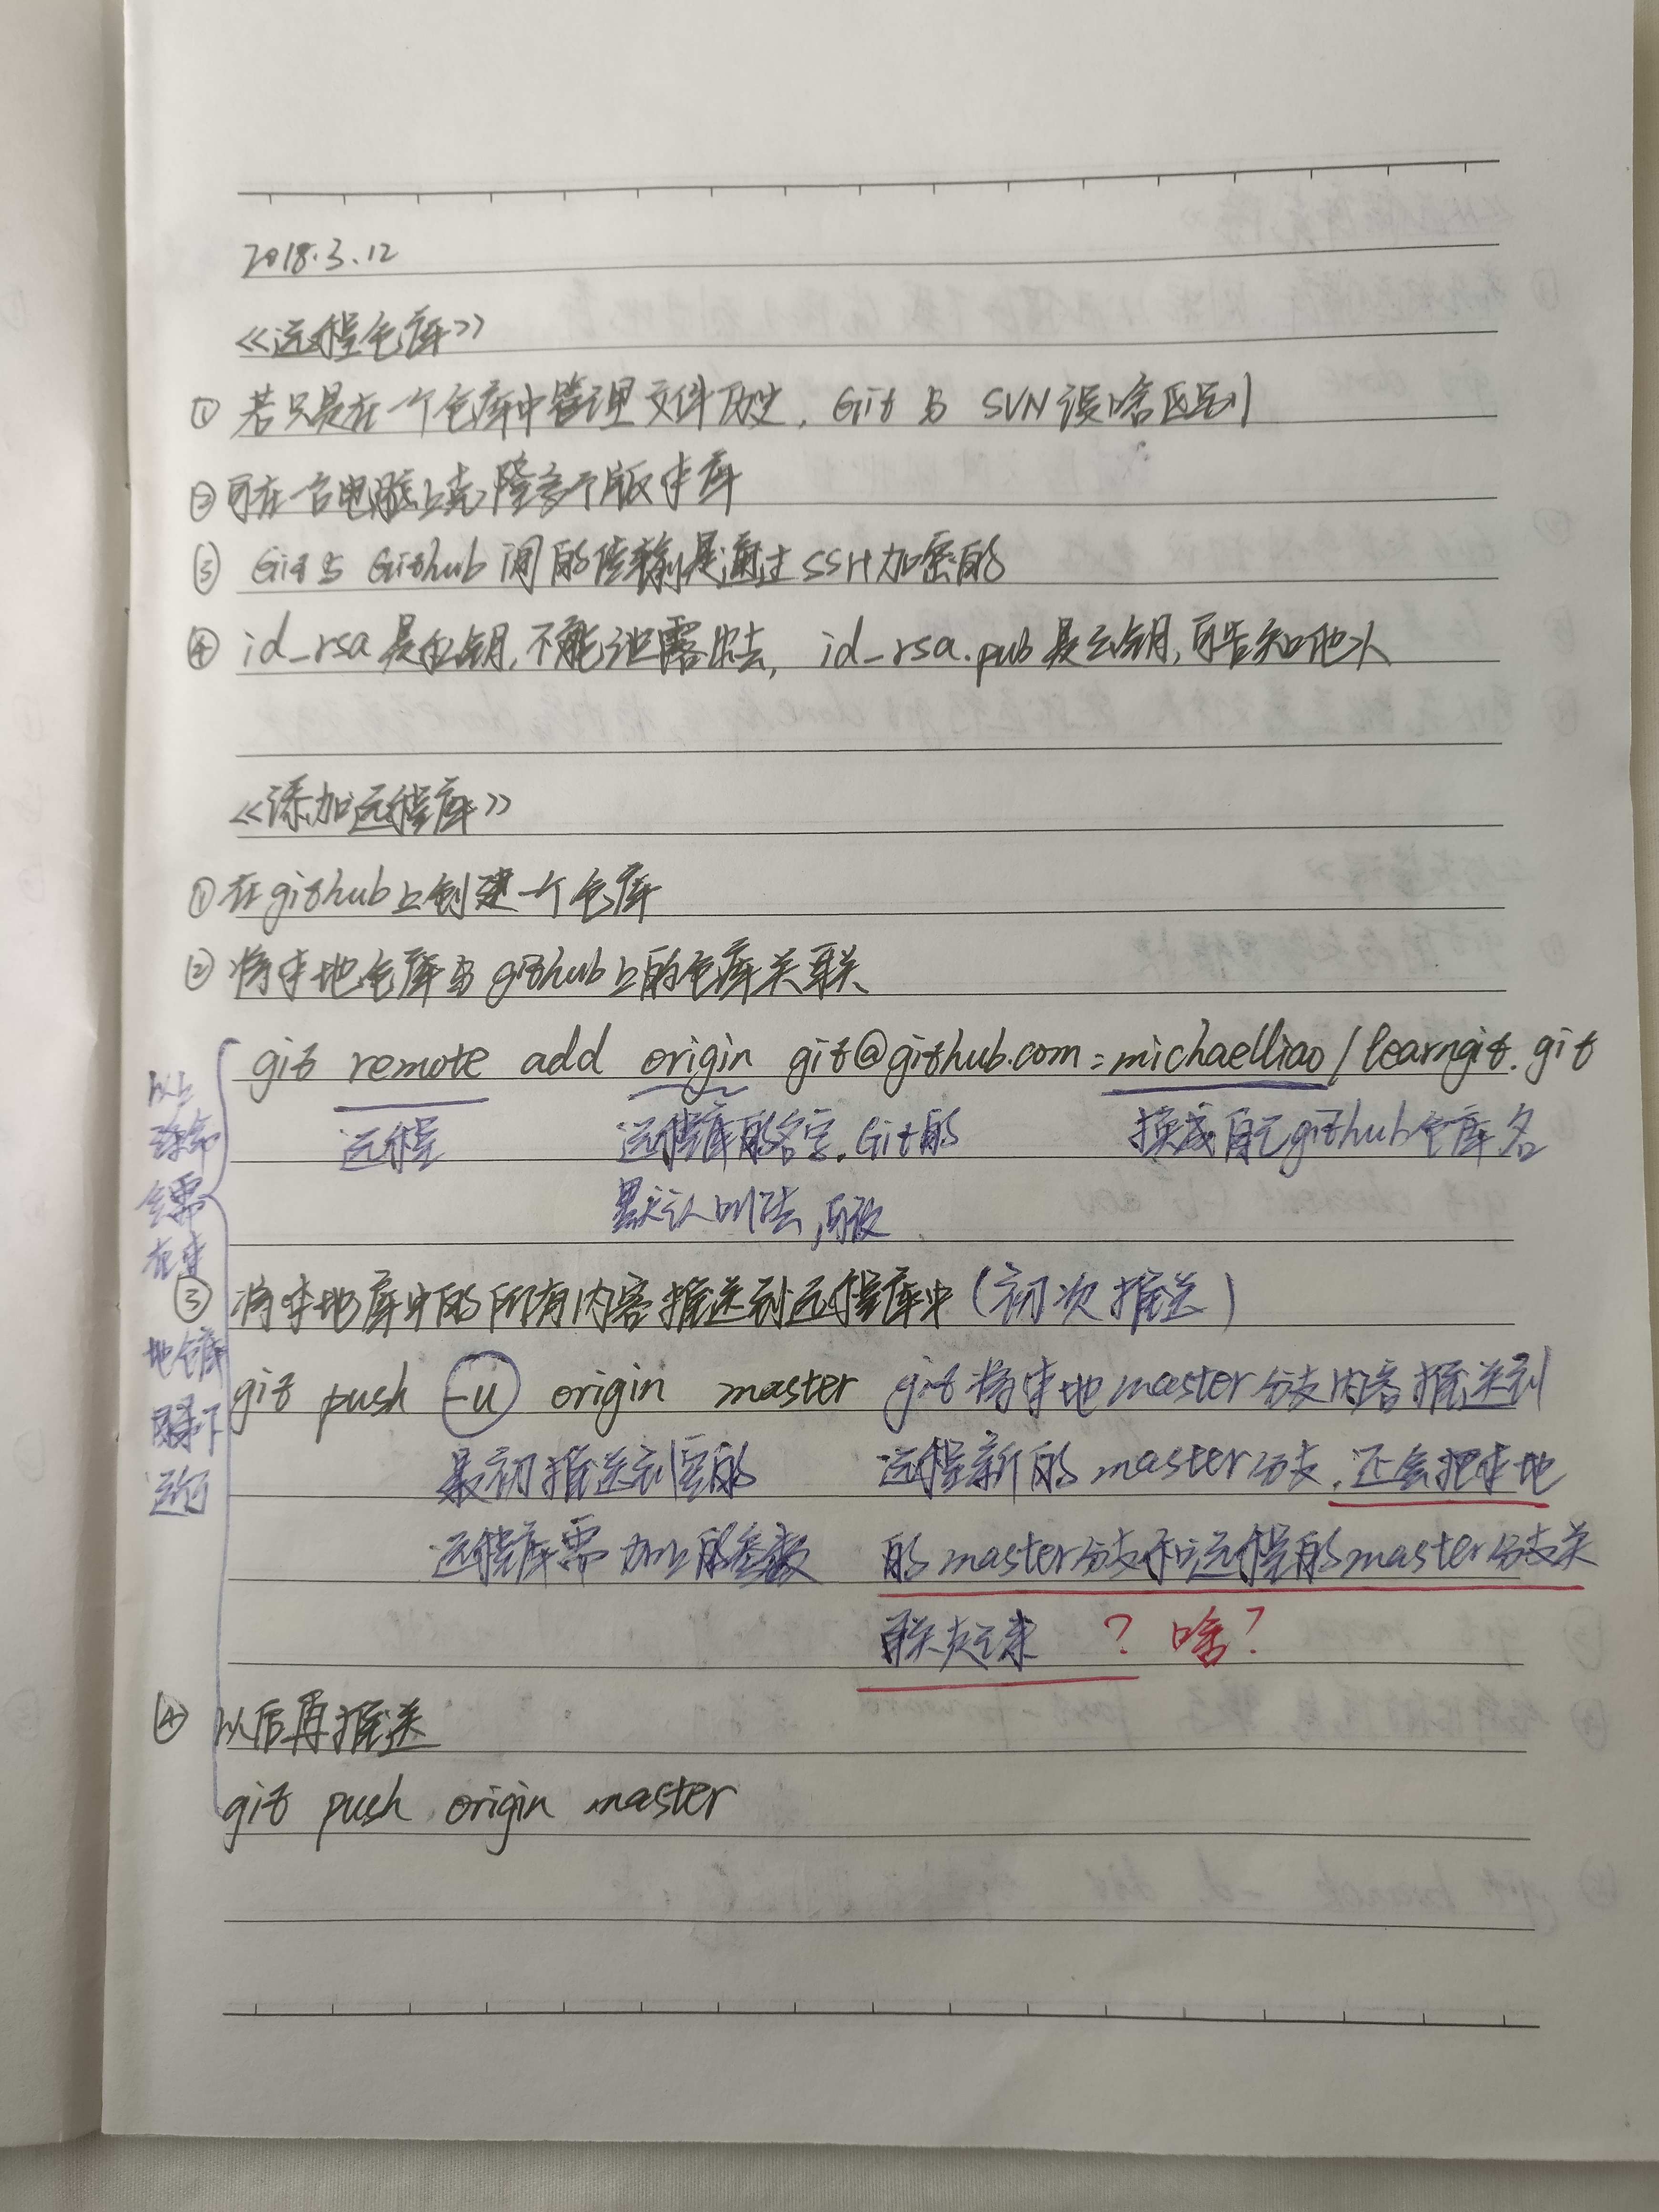 2018.3.12
《远程仓库》
① 若只是在一个仓库中管理文件历史，Git与 SVN 没啥区别
② 可在一台电脑上克隆多个版本库
③ Git与Github间的传输是通过SSH加密的
④ id_rsa是私钥,不能泄露出去, id_rsa.pub是公钥,可告知他人
《添加远程库》
① 在github上创建一个仓库
② 将本地仓库与github上的仓库关联
git remote add origin git@github.com:michaelliao/learngit.git
远程 远程库的名字.Git的 换成自己github仓库名
默认叫法,可改
③ 将本地库中的所有内容推送到远程库中(初次推送)
git push -u origin master git将本地master分支内容推送到
最初推送到空的 远程新的master分支.还会把本地
远程库需加上的参数 的master分支和远程的master分支关
联起来 ? 啥?
④ 以后再推送
git push origin master
以上
命令
全需
在本
地仓库
目录下
运行